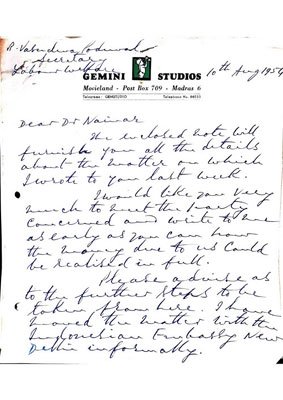 Secretary
Labour Welfare
GEMINI STUDIOS
Movieland - Post Box 709 - Madras 6
Telegrams : GEMSTUDIO Telephone No. 84333
10th Aug 195
Dear Dr Nainar
The enclosed note will
furnish you all the details
about the matter on which
I wrote to you last week.
I would like you very
much to meet the party
concerned and write to me
as early as you can how
the money due to us could
be realised in full.
Please advise as
to the further steps to be
taken from here. I have
moved the matter with the
Indonesian Embassy New
Delhi informally.